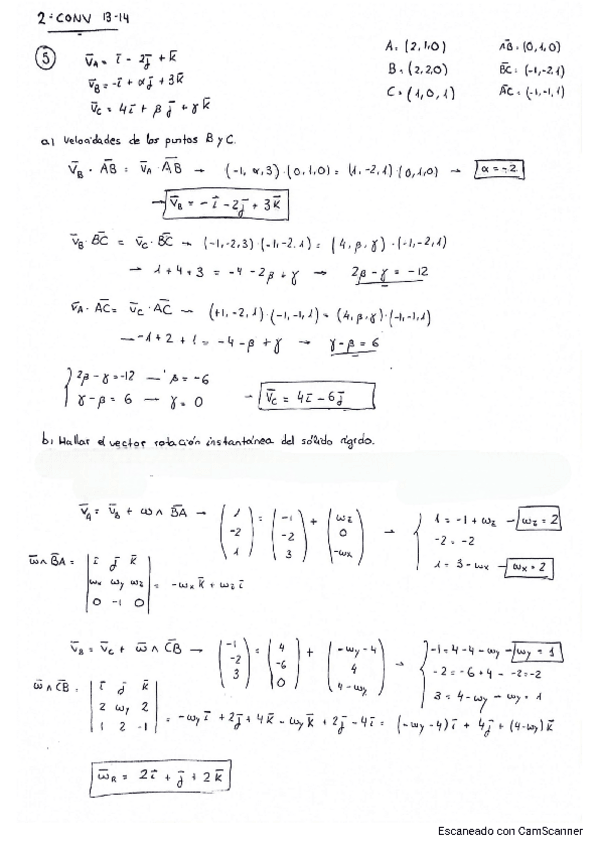 2ª CONV 13-14
5 v̄A = ī - 2j̄ + k̄ A = (2,1,0) AB̄ = (0,1,0)
v̄B = -ī + αj̄ + 3k̄ B = (2,2,0) BC̄ = (-1,-2,1)
v̄C = 4ī + βj̄ + γk̄ C = (1,0,1) AC̄ = (-1,-1,1)
a) Velocidades de los puntos B y C.
v̄B · AB̄ = v̄A · AB̄ → (-1, α, 3)·(0,1,0) = (1,-2,1)·(0,1,0) → α = -2
→ v̄B = -ī - 2j̄ + 3k̄
v̄B · BC̄ = v̄C · BC̄ → (-1,-2,3)·(-1,-2,1) = (4,β,γ)·(-1,-2,1)
→ 1+4+3 = -4-2β+γ → 2β-γ = -12
v̄A · AC̄ = v̄C · AC̄ → (+1,-2,1)·(-1,-1,1) = (4,β,γ)·(-1,-1,1)
→ -1+2+1 = -4-β+γ → γ-β = 6
2β-γ = -12 → β = -6
γ-β = 6 → γ = 0 → v̄C = 4ī - 6j̄
b) Hallar el vector rotación instantánea del sólido rígido.
v̄A = v̄B + ω ∧ BĀ → (1, -2, 1) = (-1, -2, 3) + (ωz, 0, -ωx) → 1 = -1 + ωz → ωz = 2
-2 = -2
1 = 3 - ωx → ωx = 2
ω̄ ∧ BĀ = | ī j̄ k̄ |
| ωx ωy ωz | = -ωx k̄ + ωz ī
| 0 -1 0 |
v̄B = v̄C + ω̄ ∧ CB̄ → (-1, -2, 3) = (4, -6, 0) + (-ωy-4, 4, 4-ωy) → -1 = 4-4-ωy → ωy = 1
-2 = -6+4 → -2 = -2
3 = 4-ωy → ωy = 1
ω̄ ∧ CB̄ = | ī j̄ k̄ |
| 2 ωy 2 |
| 1 2 -1 | = -ωy ī + 2j̄ + 4k̄ - ωy k̄ + 2j̄ - 4ī = (-ωy-4)ī + 4j̄ + (4-ωy)k̄
ω̄R = 2ī + j̄ + 2k̄
Escaneado con CamScanner